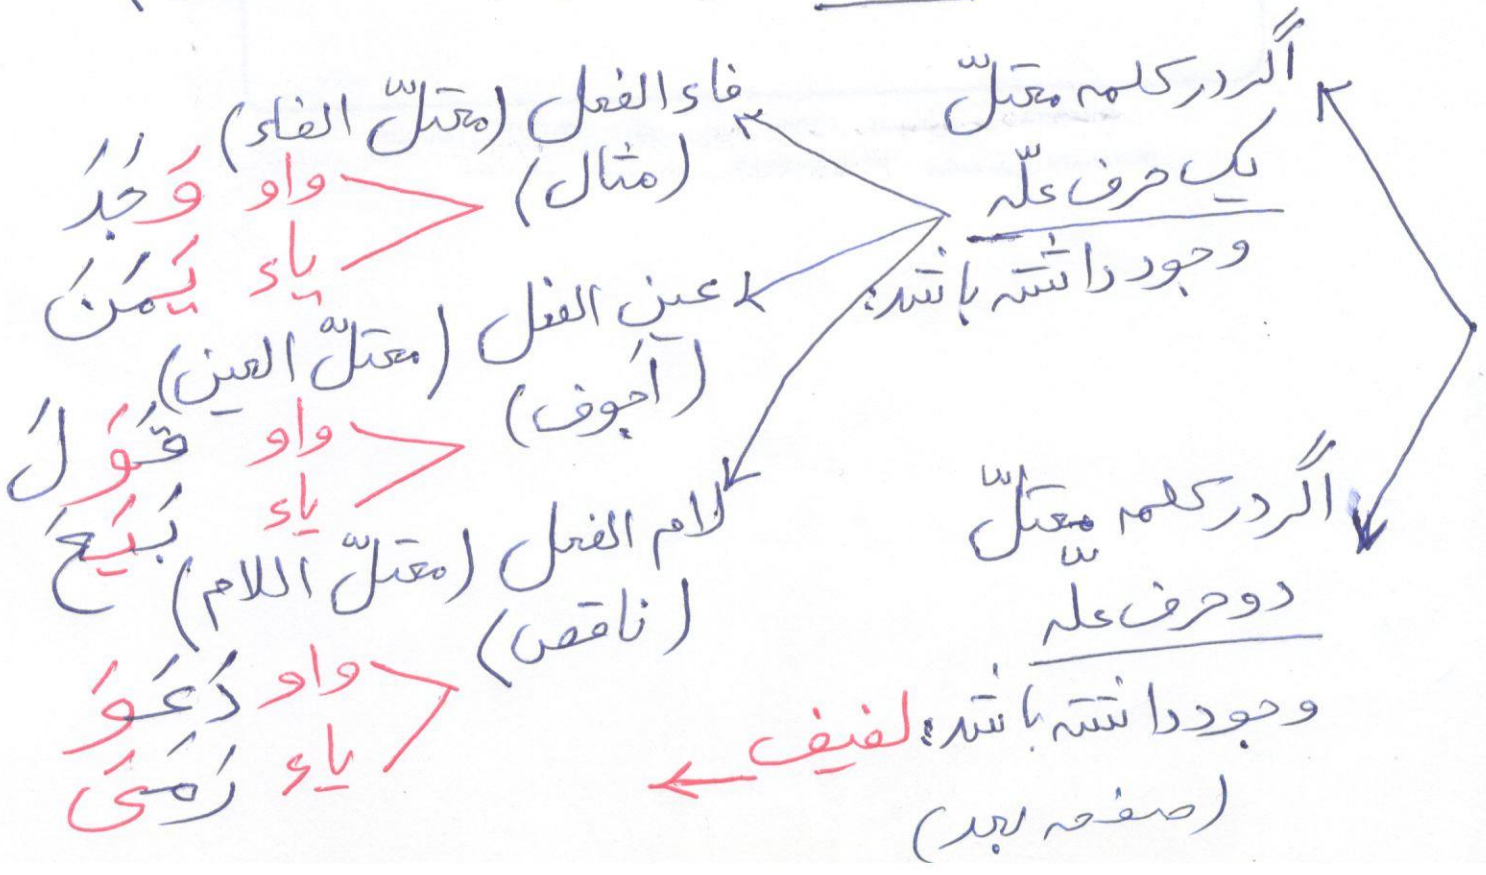 اگر در کلمه معتلّ
یک حرف علّه
وجود داشته باشد:
فاء الفعل (معتلّ الفاء)
(مثال)
واو وَجَدَ
یاء یَمَنَ
عین الفعل (معتلّ العین)
(أجوف)
واو قَوَلَ
یاء بَیَعَ
لام الفعل (معتلّ اللام)
(ناقص)
واو دَعَوَ
یاء رَمَیَ
اگر در کلمه معتلّ
دو حرف علّه
وجود داشته باشد: لفیف
(صفحه بعد)